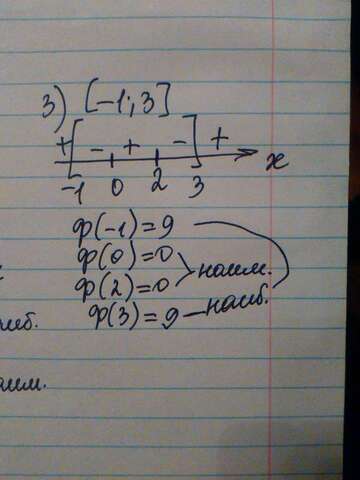 3) [-1; 3]
+ [ - + - ] +
-1 0 2 3 x
φ(-1) = 9
φ(0) = 0
φ(2) = 0 наим.
φ(3) = 9 наиб.
иб.
аим.